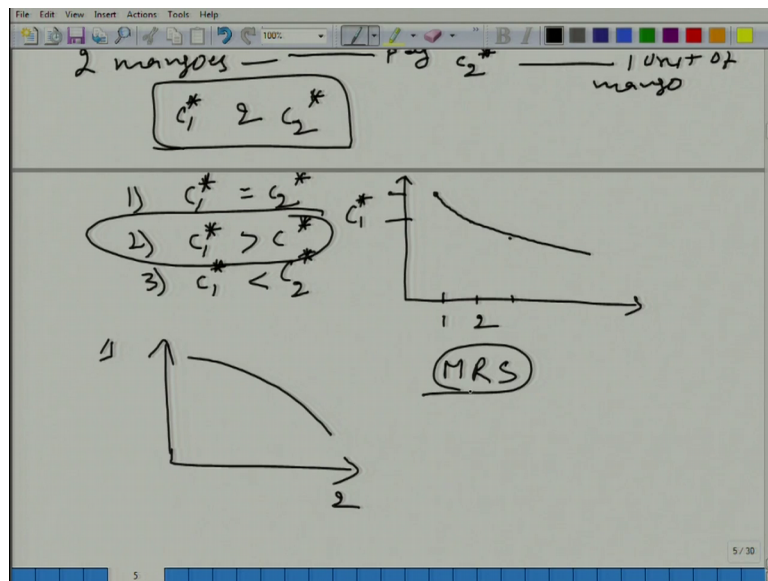 File Edit View Insert Actions Tools Help
100%
2 mangoes — pay c₂* — 1 unit of
mango
c₁* & c₂*
1) c₁* = c₂*
2) c₁* > c*
3) c₁* < c₂*
c₁*
1 2
MRS
1
2
5 / 30
5